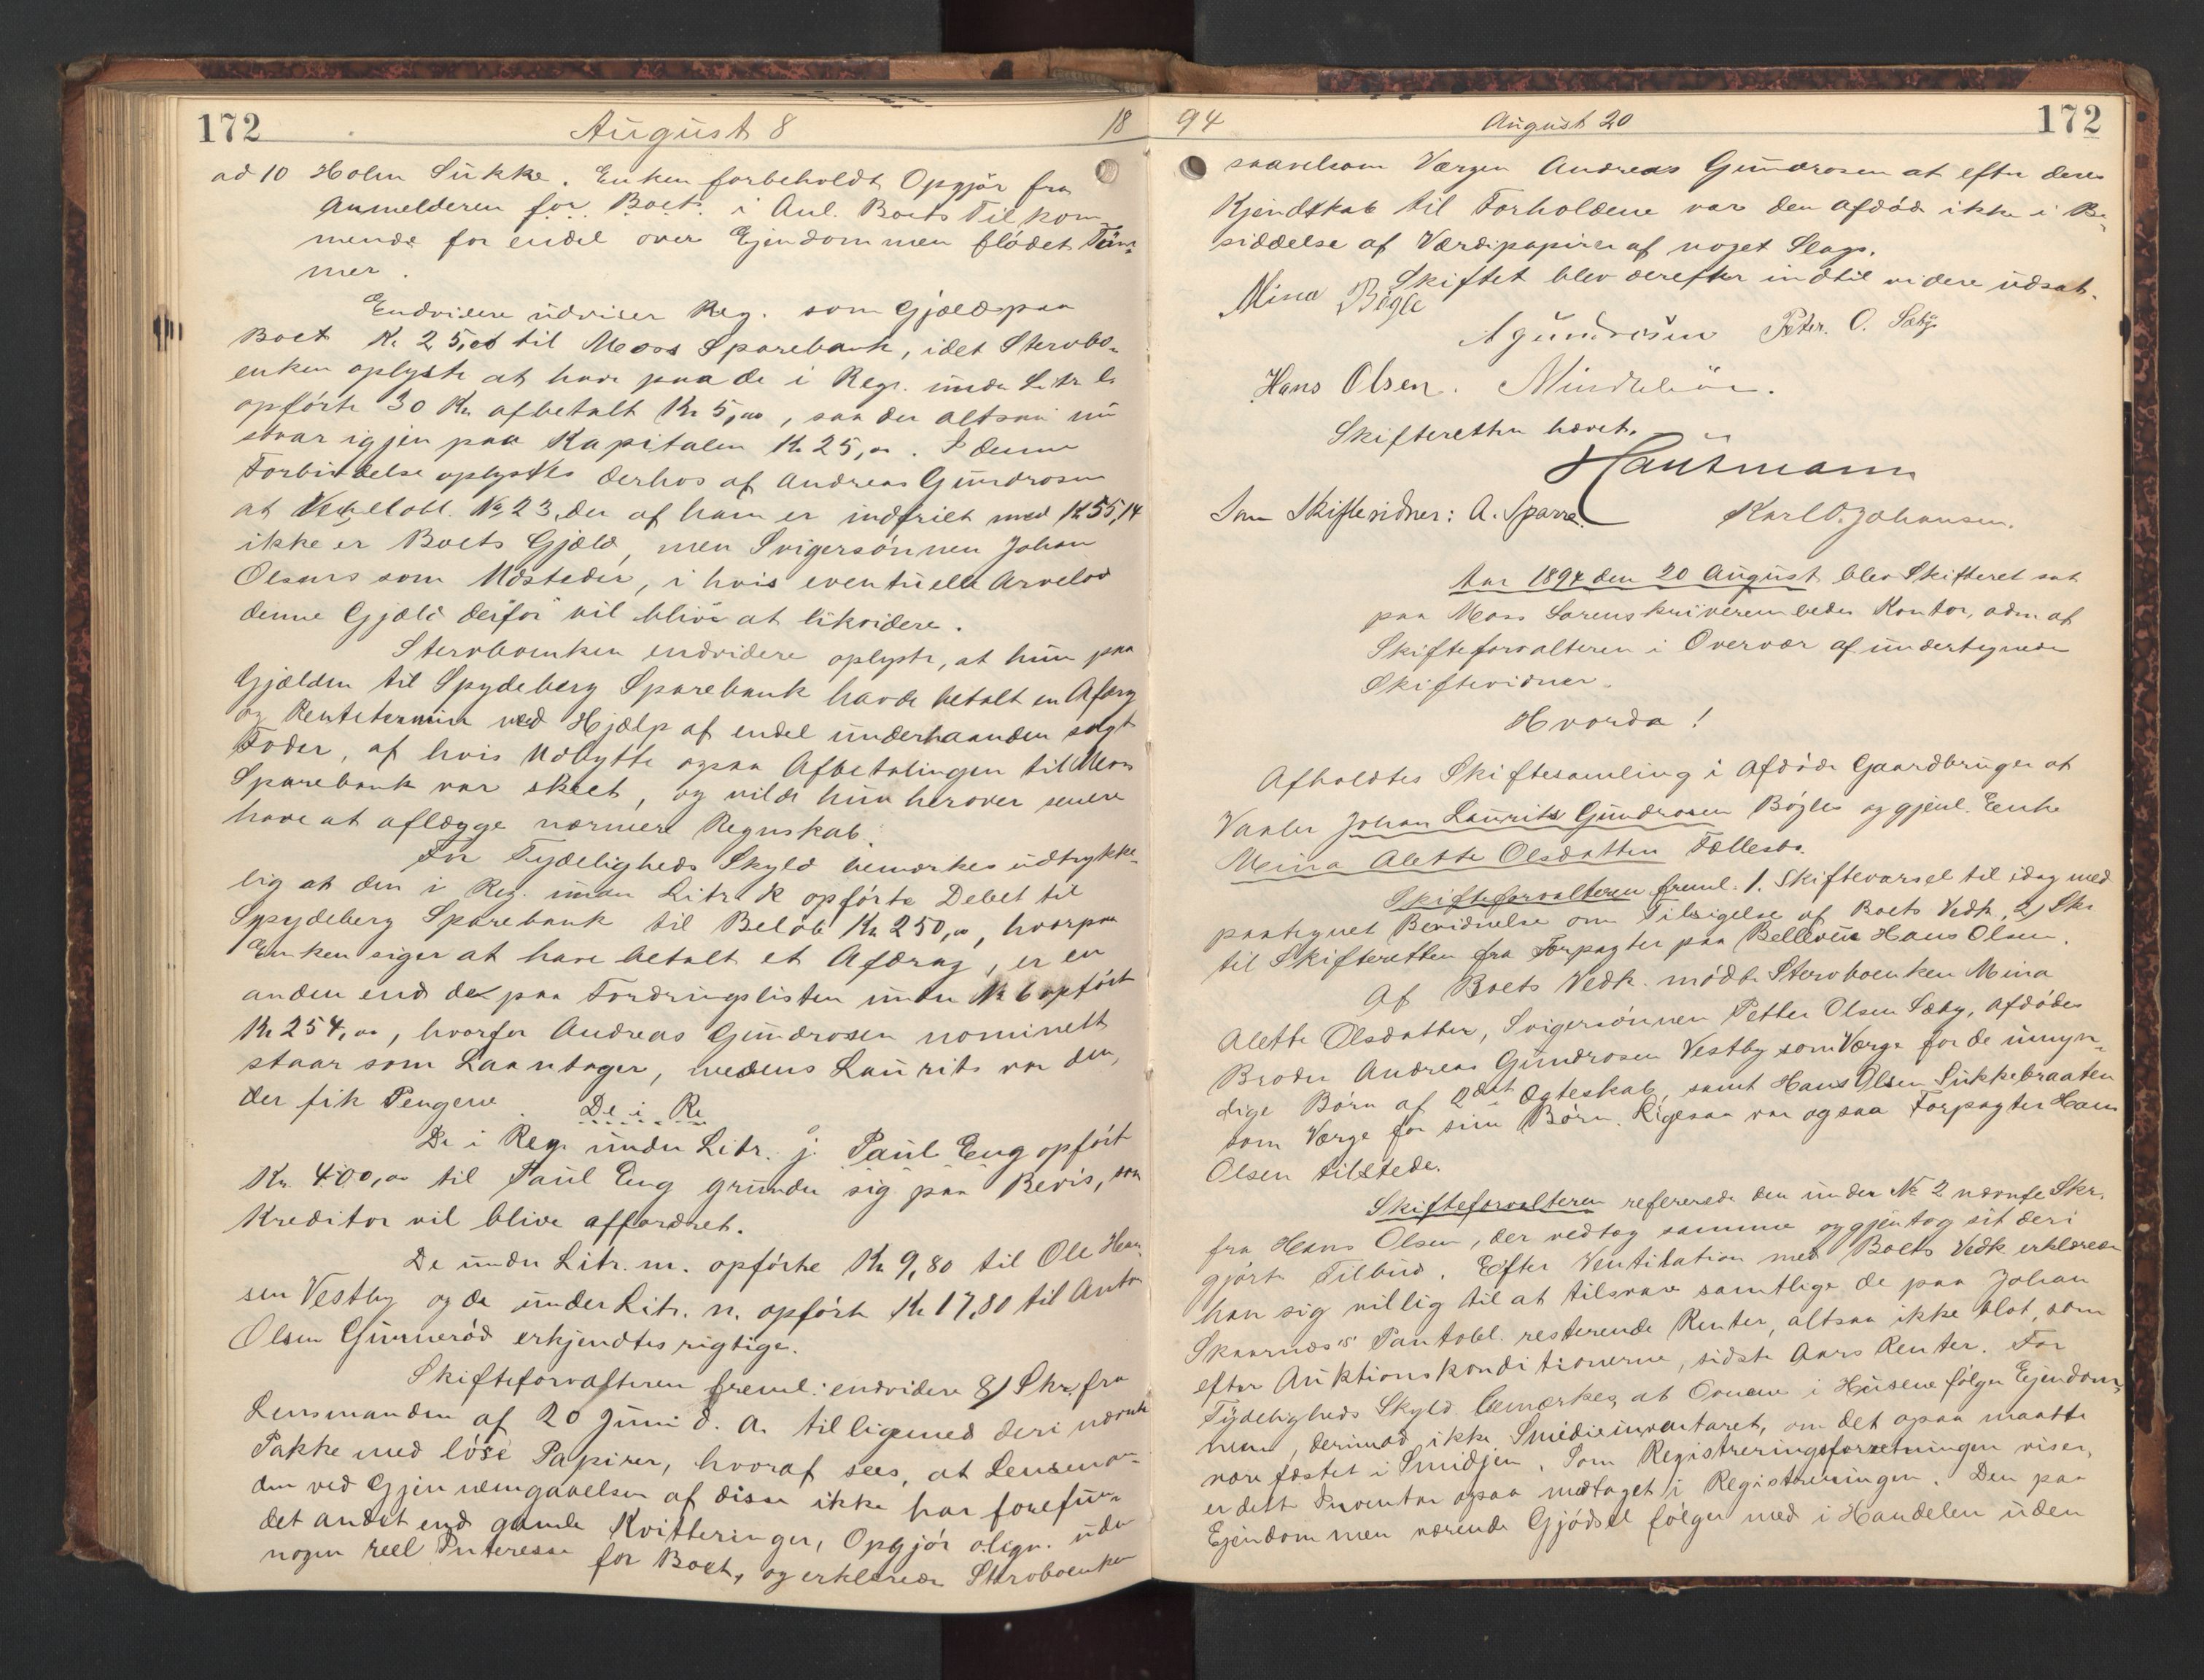 172 August 8 18
ad 10 Holm Sukke. Enken forbeholdt Opgjør fra
Anmelderen for Boets i Anl. Boets Tilkom-
mende for endel over Ejendommen flødet Tøm-
mer.
Endvidere udviser Reg. som Gjæld paa
Boet Kr. 25,00 til Moss Sparebank, idet Stervbo-
enken oplyste at have paa de i Regr. under Litr.
opførte 30 Kr afbetalt Kr 5,00, saa der altsaa nu
staar igjen paa Kapitalen Kr 25,00. I denne
Forbindelse oplystes derhos af Andreas Gundrosen
at Vexelobl. No 23, der af ham er indfriet med Kr 55,14
ikke er Boets Gjæld, men Svigersønnen Johan
Olsens som Udsteder, i hvis eventuelle Arvelod
denne Gjæld derfor vil blive at likvidere.
Stervboenken endvidere oplyste, at hun paa
Gjælden til Spydeberg Sparebank havde betalt en Afdrag
og Rentetermin ved Hjælp af endel underhaanden solgt
Foder, af hvis Udbytte ogsaa Afbetalingen til Moss
Sparebank var skeet, og vilde hun herover senere
have at aflægge nærmere Regnskab.
For Tydeligheds Skyld bemærkes udtrykke-
lig at den i Reg. under Litr. k opførte Debet til
Spydeberg Sparebank til Beløb Kr 250,00, hvorpaa
Enken siger at have betalt et Afdrag, er en
anden end de paa Fordringslisten under No 6 opført
Kr 254,00, hvorfor Andreas Gundrosen nominelt
staar som Laantager, medens Laurits var den,
der fik Pengene. De i Re
De i Reg. under Litr. j. Paul Eng opført
Kr. 400,00 til Paul Eng grunder sig paa Bevis, som
Kreditor vil blive affordret.
De under Litr. m. opførte Kr 9,80 til Ole Han-
sen Vestby og de under Litr. n. opført Kr 17,80 til Anton
Olsen Gunnerød erkjendtes rigtige.
Skifteforvalteren freml. endvidere 8) Skr. fra
Lensmanden af 20 Juni d. A. tilligemed deri nævnte
Pakke med løse Papirer, hvoraf sees, at Lensman-
den ved Gjennemgaaelsen af disse ikke har forefun-
det andet end gamle Kvitteringer, Opgjør olign. uden
nogen reel Interesse for Boet, og erklærede Stervboenken
94 August 20 172
saavelsom Værgen Andreas Gundrosen at efter deres
Kjendskab til Forholdene var den Afdøde ikke i Be-
siddelse af Værdipapirer af noget Slags.
Skiftet blev derefter indtil videre udsat.
Mina Bøgle
A Gundrosen Peter. O. Sæby
Hans Olsen.
Skifteretten hævet.
Hautmann
Som Skiftevidner: A. Sparre. Karl O. Johansen.
Aar 1894 den 20 August blev Skifteret sat
paa Moss Sorenskriverembedes Kontor, adm. af
Skifteforvalteren i Overvær af undertegnede
Skiftevidner.
Hvorda!
Afholdtes Skiftesamling i Afdøde Gaardbruger at
Vaaler Johan Laurits Gundrosen Bøgles og gjenl. Enke
Mina Alette Olsdatters Fællesbo.
Skifteforvalteren freml. 1. Skiftevarsel til idag med
paategnet Bevidnelse om Tilsigelse af Boets Vedk, 2) Skr
til Skifteretten fra Forpagter paa Bellevue Hans Olsen.
Af Boets Vedk. mødte Stervboenken Mina
Alette Olsdatter, Svigersønnen Petter Olsen Sæby, Afdødes
Broder Andreas Gundrosen Vestby som Værge for de umyn-
dige Børn af 2det Ægteskab, samt Hans Olsen Sukkebraaten
som Værge for sine Børn. Ligesaa var ogsaa Forpagter Hans
Olsen tilstede.
Skifteforvalteren refererede den under No 2 nævnte Skr.
fra Hans Olsen, der vedtog samme og gjentog sit deri
gjorte Tilbud. Efter Ventilation med Boets Vedk. erklærede
han sig villig til at tilsvare samtlige de paa Johan
Skaarnæs's Pantobl. resterende Renter, altsaa ikke blot, som
efter Auktionskonditionerne, sidste Aars Renter. For
Tydeligheds Skyld bemærkes, at Ovnene i Husene følger Ejendom-
men, derimod ikke Smedieinventaret, om det ogsaa maatte
være fæstet i Smidjen. Som Registreringsforretningen viser,
er dette Inventar ogsaa medtaget i Registreringen. Den paa
Ejendommen værende Gjødsel følger med i Handelen uden